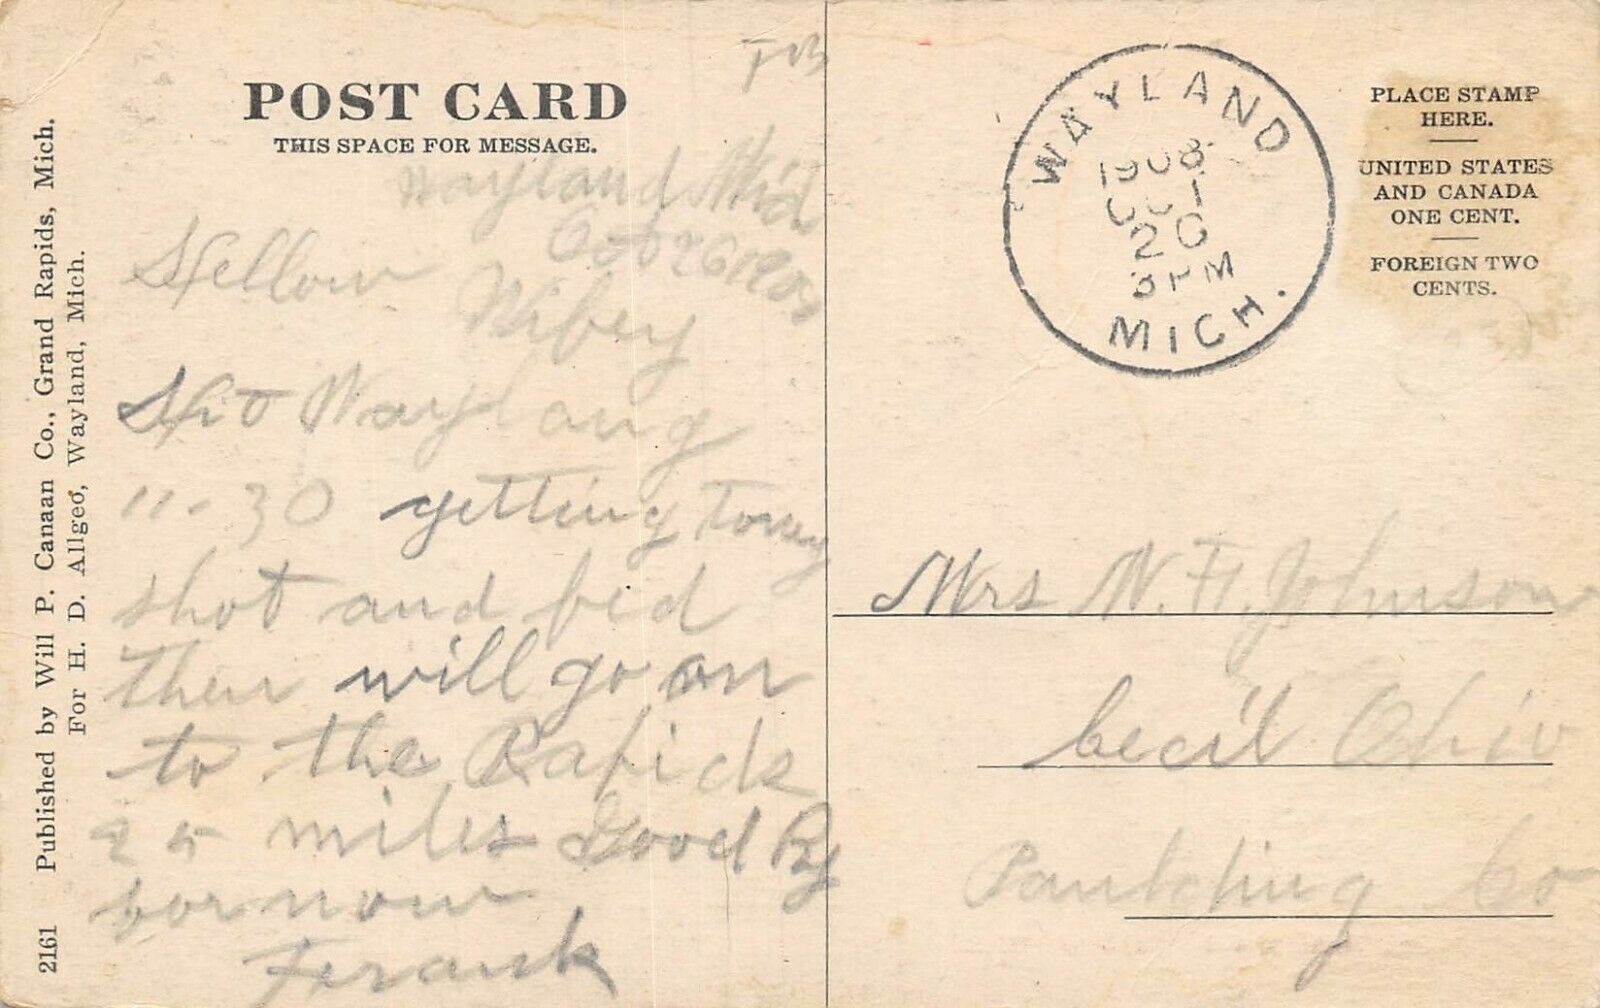 2161 Published by Will P. Canaan Co., Grand Rapids, Mich.
For H. D. Allgeo, Wayland, Mich.
POST CARD
THIS SPACE FOR MESSAGE.
Wayland Mich
Oct 26 1908
Hellow
Wifey
Hit Wayland
11-30 getting
shot and fed
then will go on
to the Rapids
25 miles Good By
for now
Frank
WAYLAND
1908
OCT
26
3 PM
MICH.
PLACE STAMP
HERE.
UNITED STATES
AND CANADA
ONE CENT.
FOREIGN TWO
CENTS.
Mrs N. F. Johnson
Cecil Ohio
Paulding Co